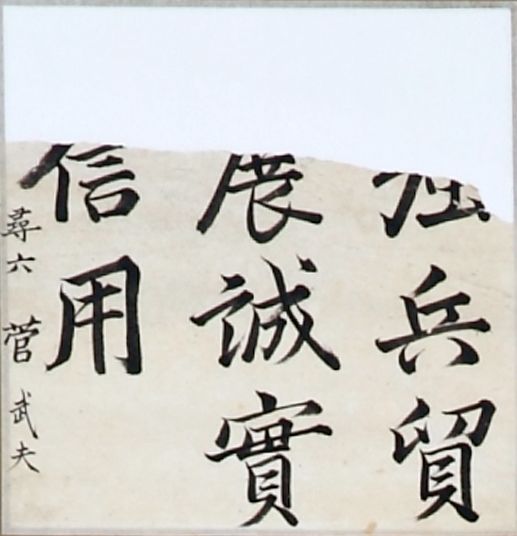 兵貿
展誠實
信用
尋六 菅武夫